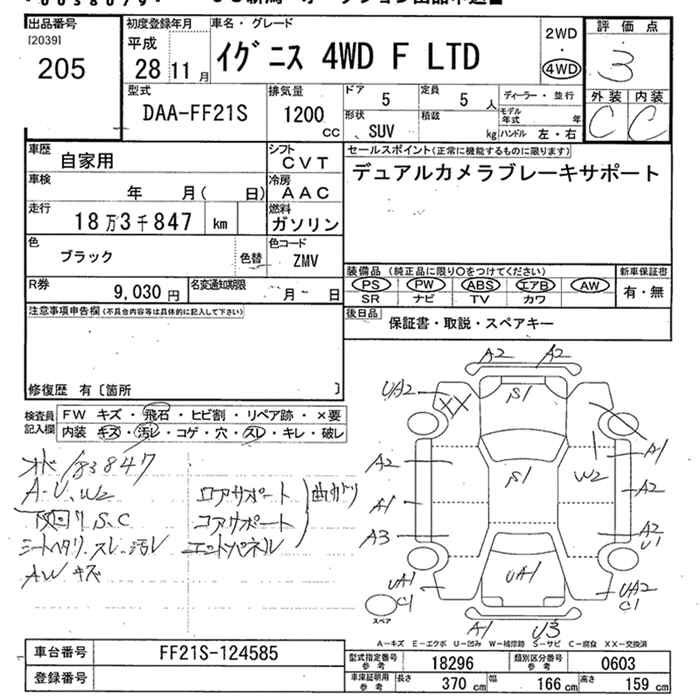 出品番号
[2039]
205
初度登録年月
平成
28 11 月
車名・グレード
イグニス 4WD F LTD
2WD
・
4WD
評価点
3
外装 内装
C C
型式
DAA-FF21S
排気量
1200
CC
ドア 5
定員 5 人
形状
SUV
積載
kg
ディーラー・並行
モデル年式 年
ハンドル 左・右
車歴
自家用
シフト
CVT
車検 年 月( 日)
冷房
AAC
走行
18万3千847 km
燃料
ガソリン
色
ブラック
色替
色コード
ZMV
R券
9,030 円
名変通知期限
月 日
セールスポイント(正常に機能するものに限ります)
デュアルカメラブレーキサポート
装備品 (純正品に限り○をつけてください)
PS PW ABS エアB AW
SR ナビ TV カワ
新車保証書
有・無
後日品
保証書・取説・スペアキー
注意事項申告欄(不具合内容等は具体的に記入して下さい)
修復歴 有〔箇所 〕
検査員記入欄
FW キズ・飛石・ヒビ割・リペア跡・×要
内装 キズ・汚レ・コゲ・穴・スレ・キレ・破レ
183847
A-U、W2
S.C
シートヘタリ.スレ.汚レ
AWキズ
ロアサポート
コアサポート
エンドパネル
曲がり
A2 A2
UA2 XX
S1
A2
S1
A1
W2
A2
A1
A3
A2
U1
UA1
C1
UA1
UA2
C1
A1 U3
スペア
A-キズ E-エクボ U-凹み W-補修跡 S-サビ C-腐食 XX-交換済
車台番号
FF21S-124585
登録番号
型式指定番号
参考
18296
類別区分番号
参考
0603
車庫証明用
参考
長さ 370 cm
幅 166 cm
高さ 159 cm